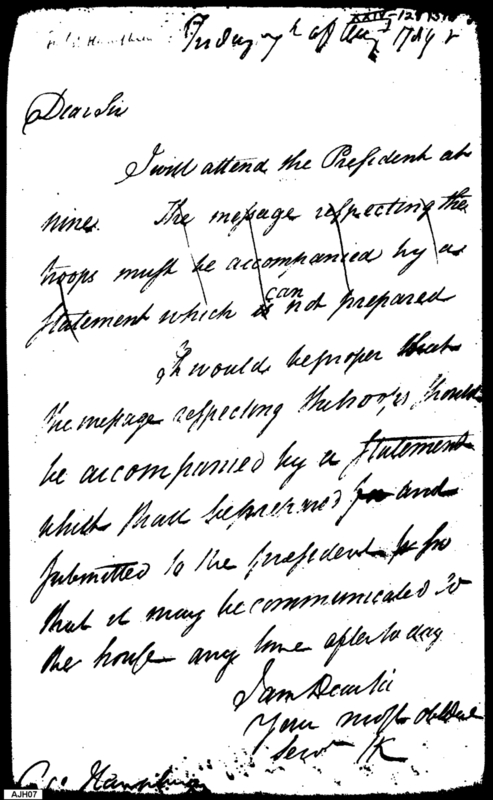 Dear Sir
I will attend the President at
nine. The message respecting the
troops must be accompanied by a
statement which is can not prepared
It would be proper that
the message respecting the troops should
be accompanied by a statement
which shall be prepared and
submitted to the president so
that it may be communicated to
the house any time after to day
I am Dear Sir
Your most obedient
Servt K
AJH07